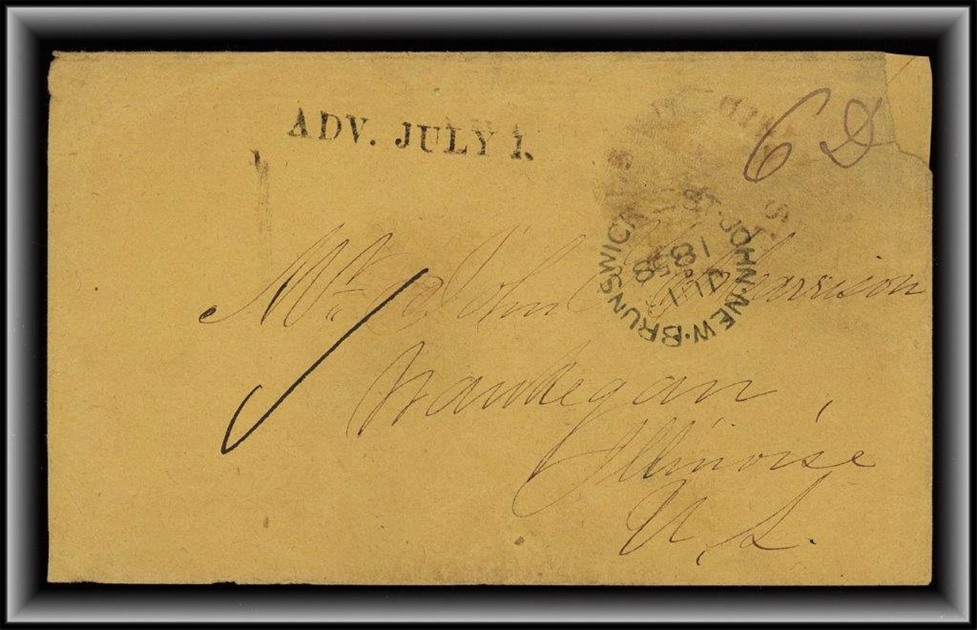 ADV. JULY 1.
6 D
ST. JOHN · NEW · BRUNSWICK
JU 1
1858
Mr John Harrison
Waukegan,
Illinoise
U. S.